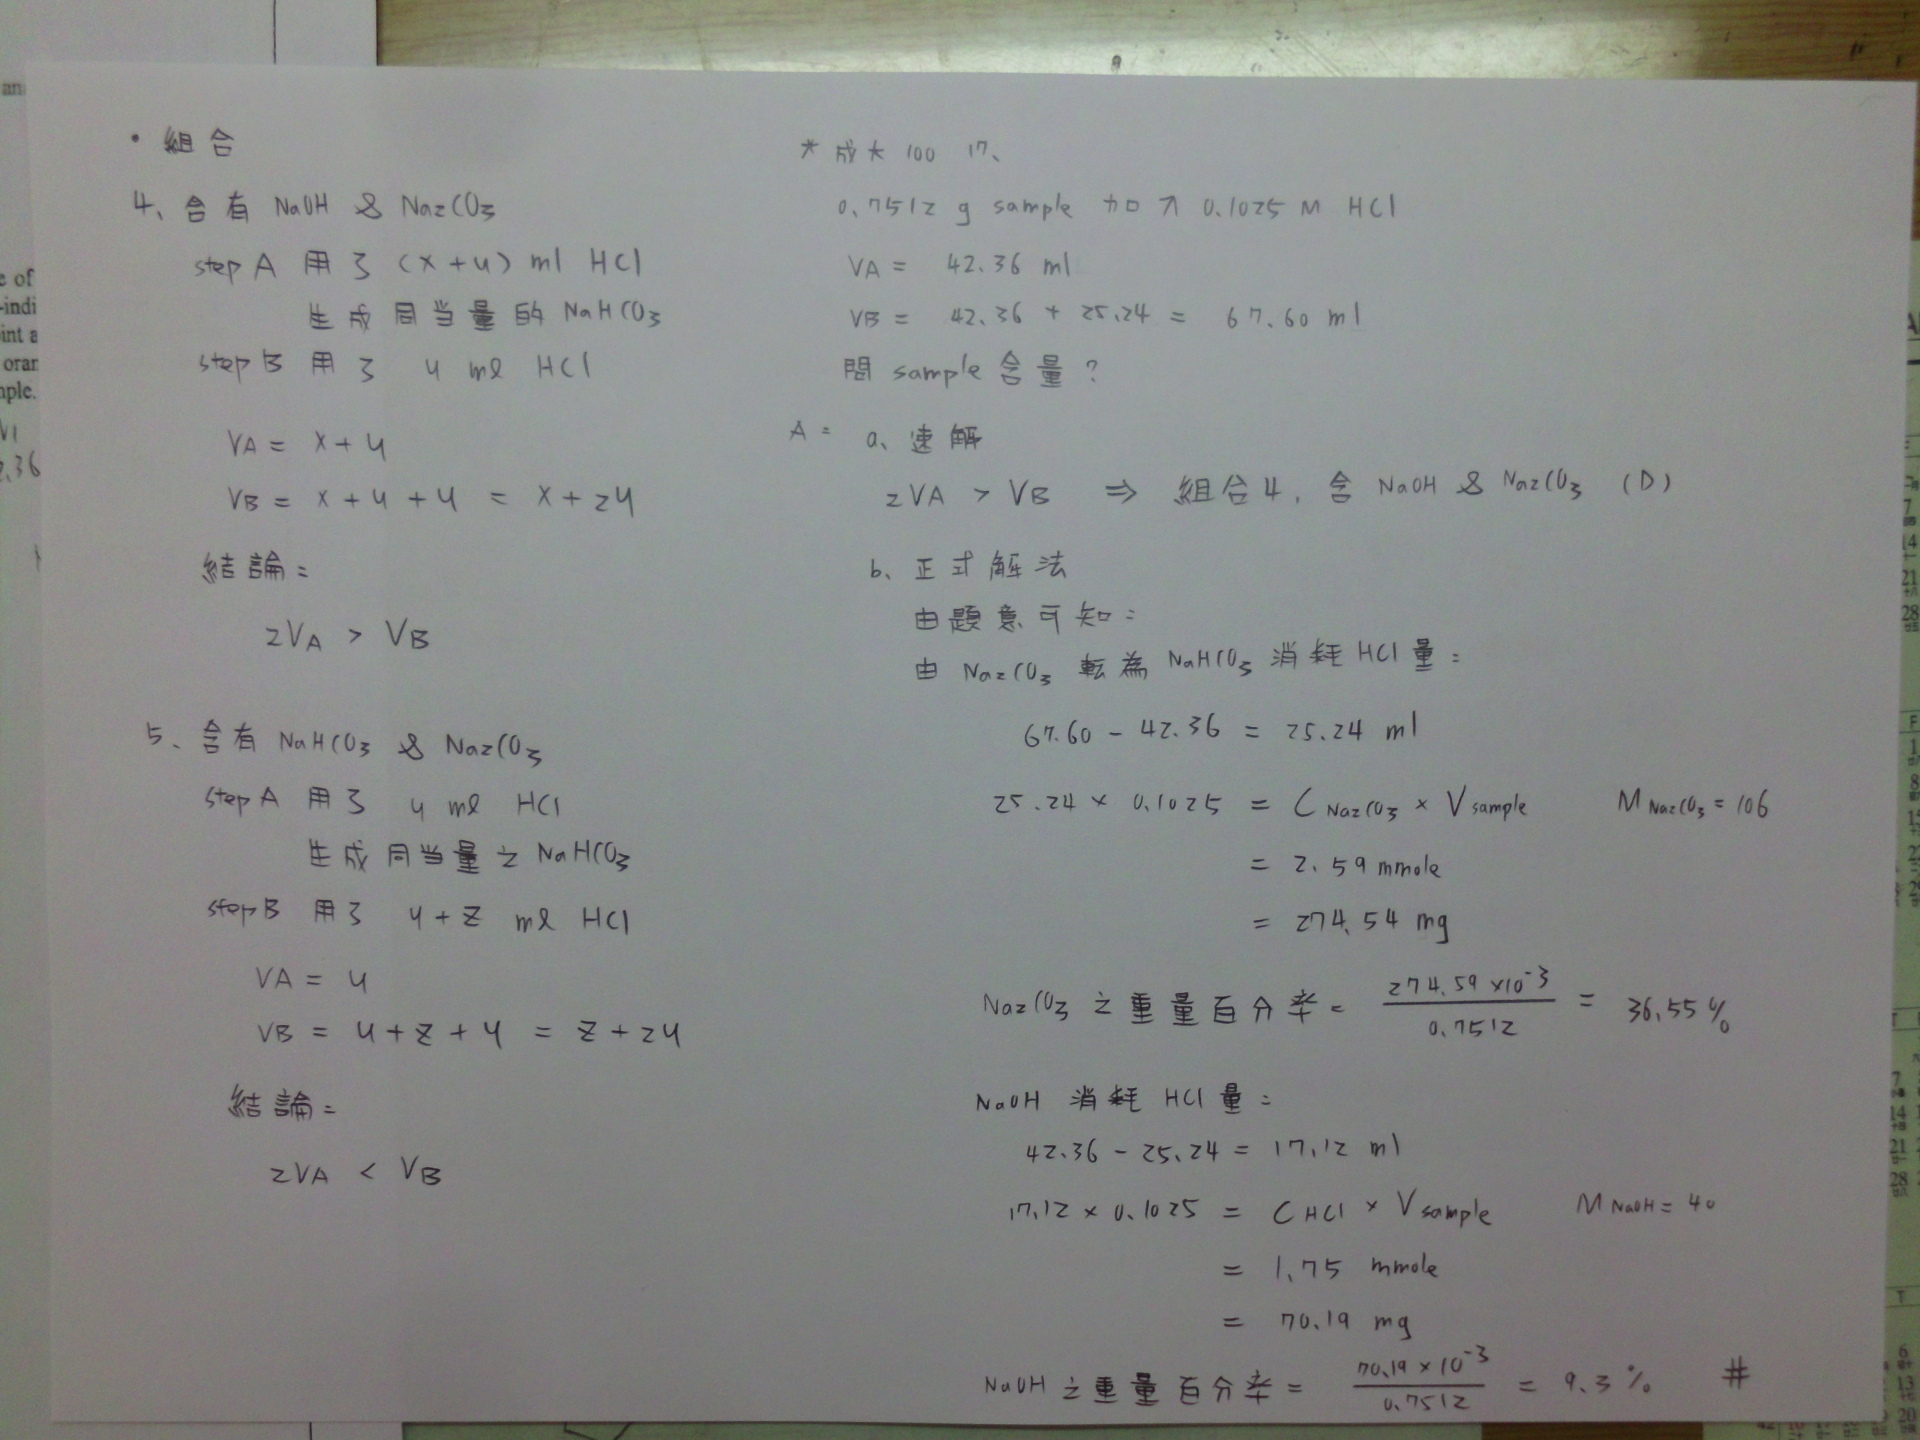 • 組合
4、含有 NaOH & Na2CO3
step A 用了 (x+y) ml HCl
生成同当量的 NaHCO3
step B 用了 y ml HCl
VA = x+y
VB = x+y+y = x+2y
結論=
2VA > VB
5、含有 NaHCO3 & Na2CO3
step A 用了 y ml HCl
生成同当量之 NaHCO3
step B 用了 y+z ml HCl
VA = y
VB = y+z+y = z+2y
結論=
2VA < VB
* 成大 100 17、
0.7512 g sample 加入 0.1025 M HCl
VA = 42.36 ml
VB = 42.36 + 25.24 = 67.60 ml
問 sample 含量?
A= a、速解
2VA > VB ⇒ 組合4, 含 NaOH & Na2CO3 (D)
b、正式解法
由題意可知=
由 Na2CO3 転為 NaHCO3 消耗 HCl 量=
67.60 - 42.36 = 25.24 ml
25.24 × 0.1025 = C Na2CO3 × V sample M Na2CO3 = 106
= 2.59 mmole
= 274.54 mg
Na2CO3 之重量百分率= 274.59×10⁻³ / 0.7512 = 36.55%
NaOH 消耗 HCl 量=
42.36 - 25.24 = 17.12 ml
17.12 × 0.1025 = C HCl × V sample M NaOH = 40
= 1.75 mmole
= 70.19 mg
NaOH 之重量百分率= 70.19×10⁻³ / 0.7512 = 9.3% #
an
e of
-indi
int a
oran
nple.
2.36
7
14
21
28
7
14
21
28
6
13
20